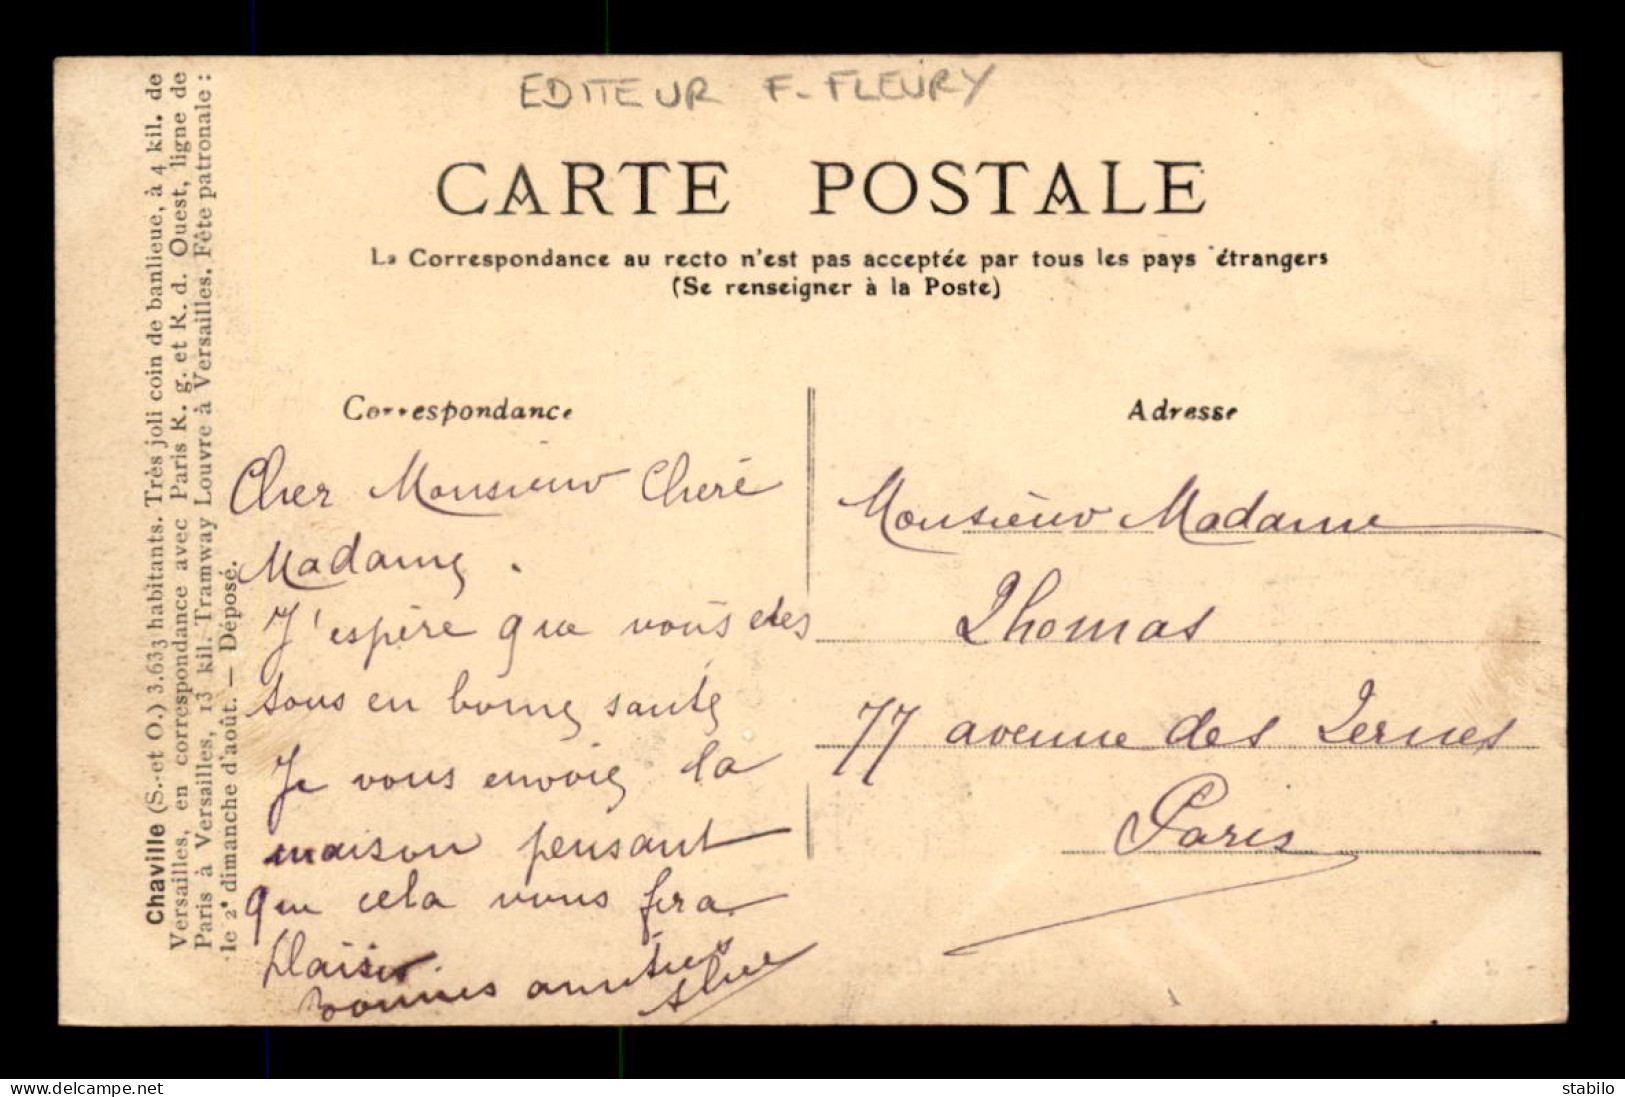 EDITEUR F. FLEURY
CARTE POSTALE
La Correspondance au recto n'est pas acceptée par tous les pays étrangers
(Se renseigner à la Poste)
Correspondance
Adresse
Chaville (S.-et O.) 3.633 habitants. Très joli coin de banlieue, à 4 kil. de
Versailles, en correspondance avec Paris R. g. et R. d. Ouest, ligne de
Paris à Versailles, 13 kil. Tramway Louvre à Versailles. Fête patronale :
le 2e dimanche d'août. — Déposé.
Cher Monsieur Chère
Madame.
J'espère que vous etes
tous en bonne santé
Je vous envoie la
maison pensant
que cela vous fera
plaisir
Bonnes amitiés
Monsieur Madame
Thomas
77 avenue des Ternes
Paris
delcampe.net
stabilo